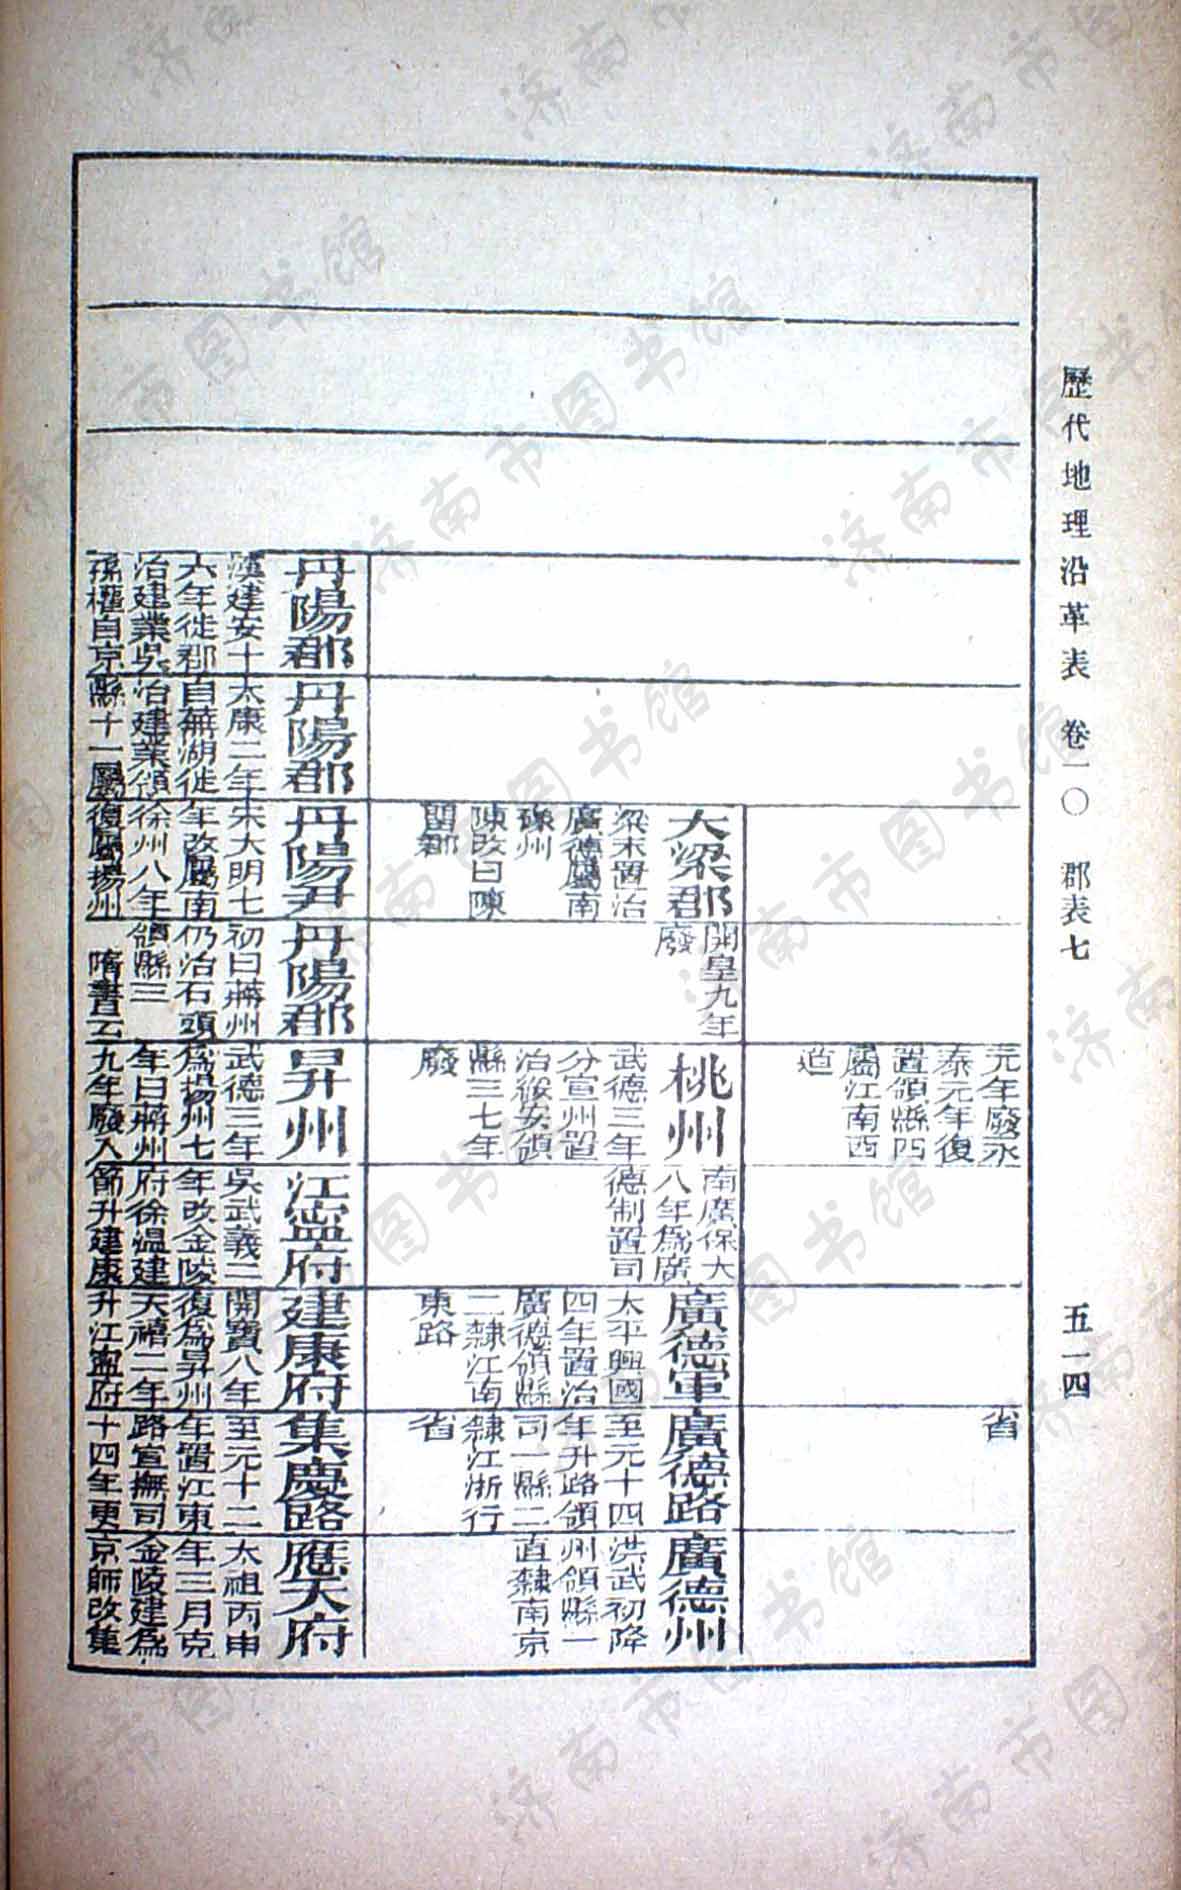 歷代地理沿革表 卷一〇 郡表七
五一四
元年廢永
泰元年復
置領縣四
屬江南西
道
省
大梁郡
梁末置治
廣德屬南
豫州
陳改曰陳
留郡
開皇九年
廢
桃州
武德三年
分宣州置
治綏安領
縣三七年
廢
南廣保大
八年爲廣
德制置司
廣德軍
太平興國
四年置治
廣德領縣
二隸江南
東路
廣德路
至元十四
年升路領
司一縣二
隸江浙行
省
廣德州
洪武初降
州領縣一
直隸南京
丹陽郡
漢建安十
六年徙郡
治建業吳
孫權自京
丹陽郡
太康二年
自蕪湖徙
治建業領
縣十一屬
丹陽尹
宋大明七
年改屬南
徐州八年
復屬揚州
丹陽郡
初曰蔣州
仍治石頭
領縣三
隋書云
昇州
武德三年
爲揚州七
年曰蔣州
九年廢入
江寧府
吳武義二
年改金陵
府徐溫建
節升建康
建康府
開寶八年
復爲昇州
天禧二年
升江寧府
集慶路
至元十二
年置江東
路宣撫司
十四年更
應天府
太祖丙申
年三月克
金陵建爲
京師改集
济南市图书馆